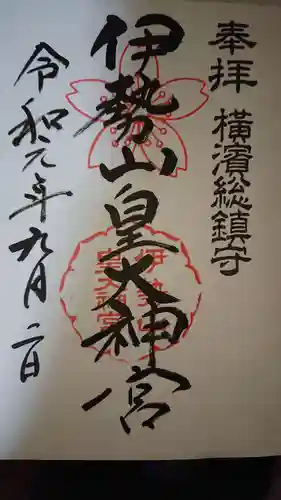 奉拝 横濱総鎮守
伊勢山皇大神宮
伊勢山
皇大神宮
令和元年九月二日